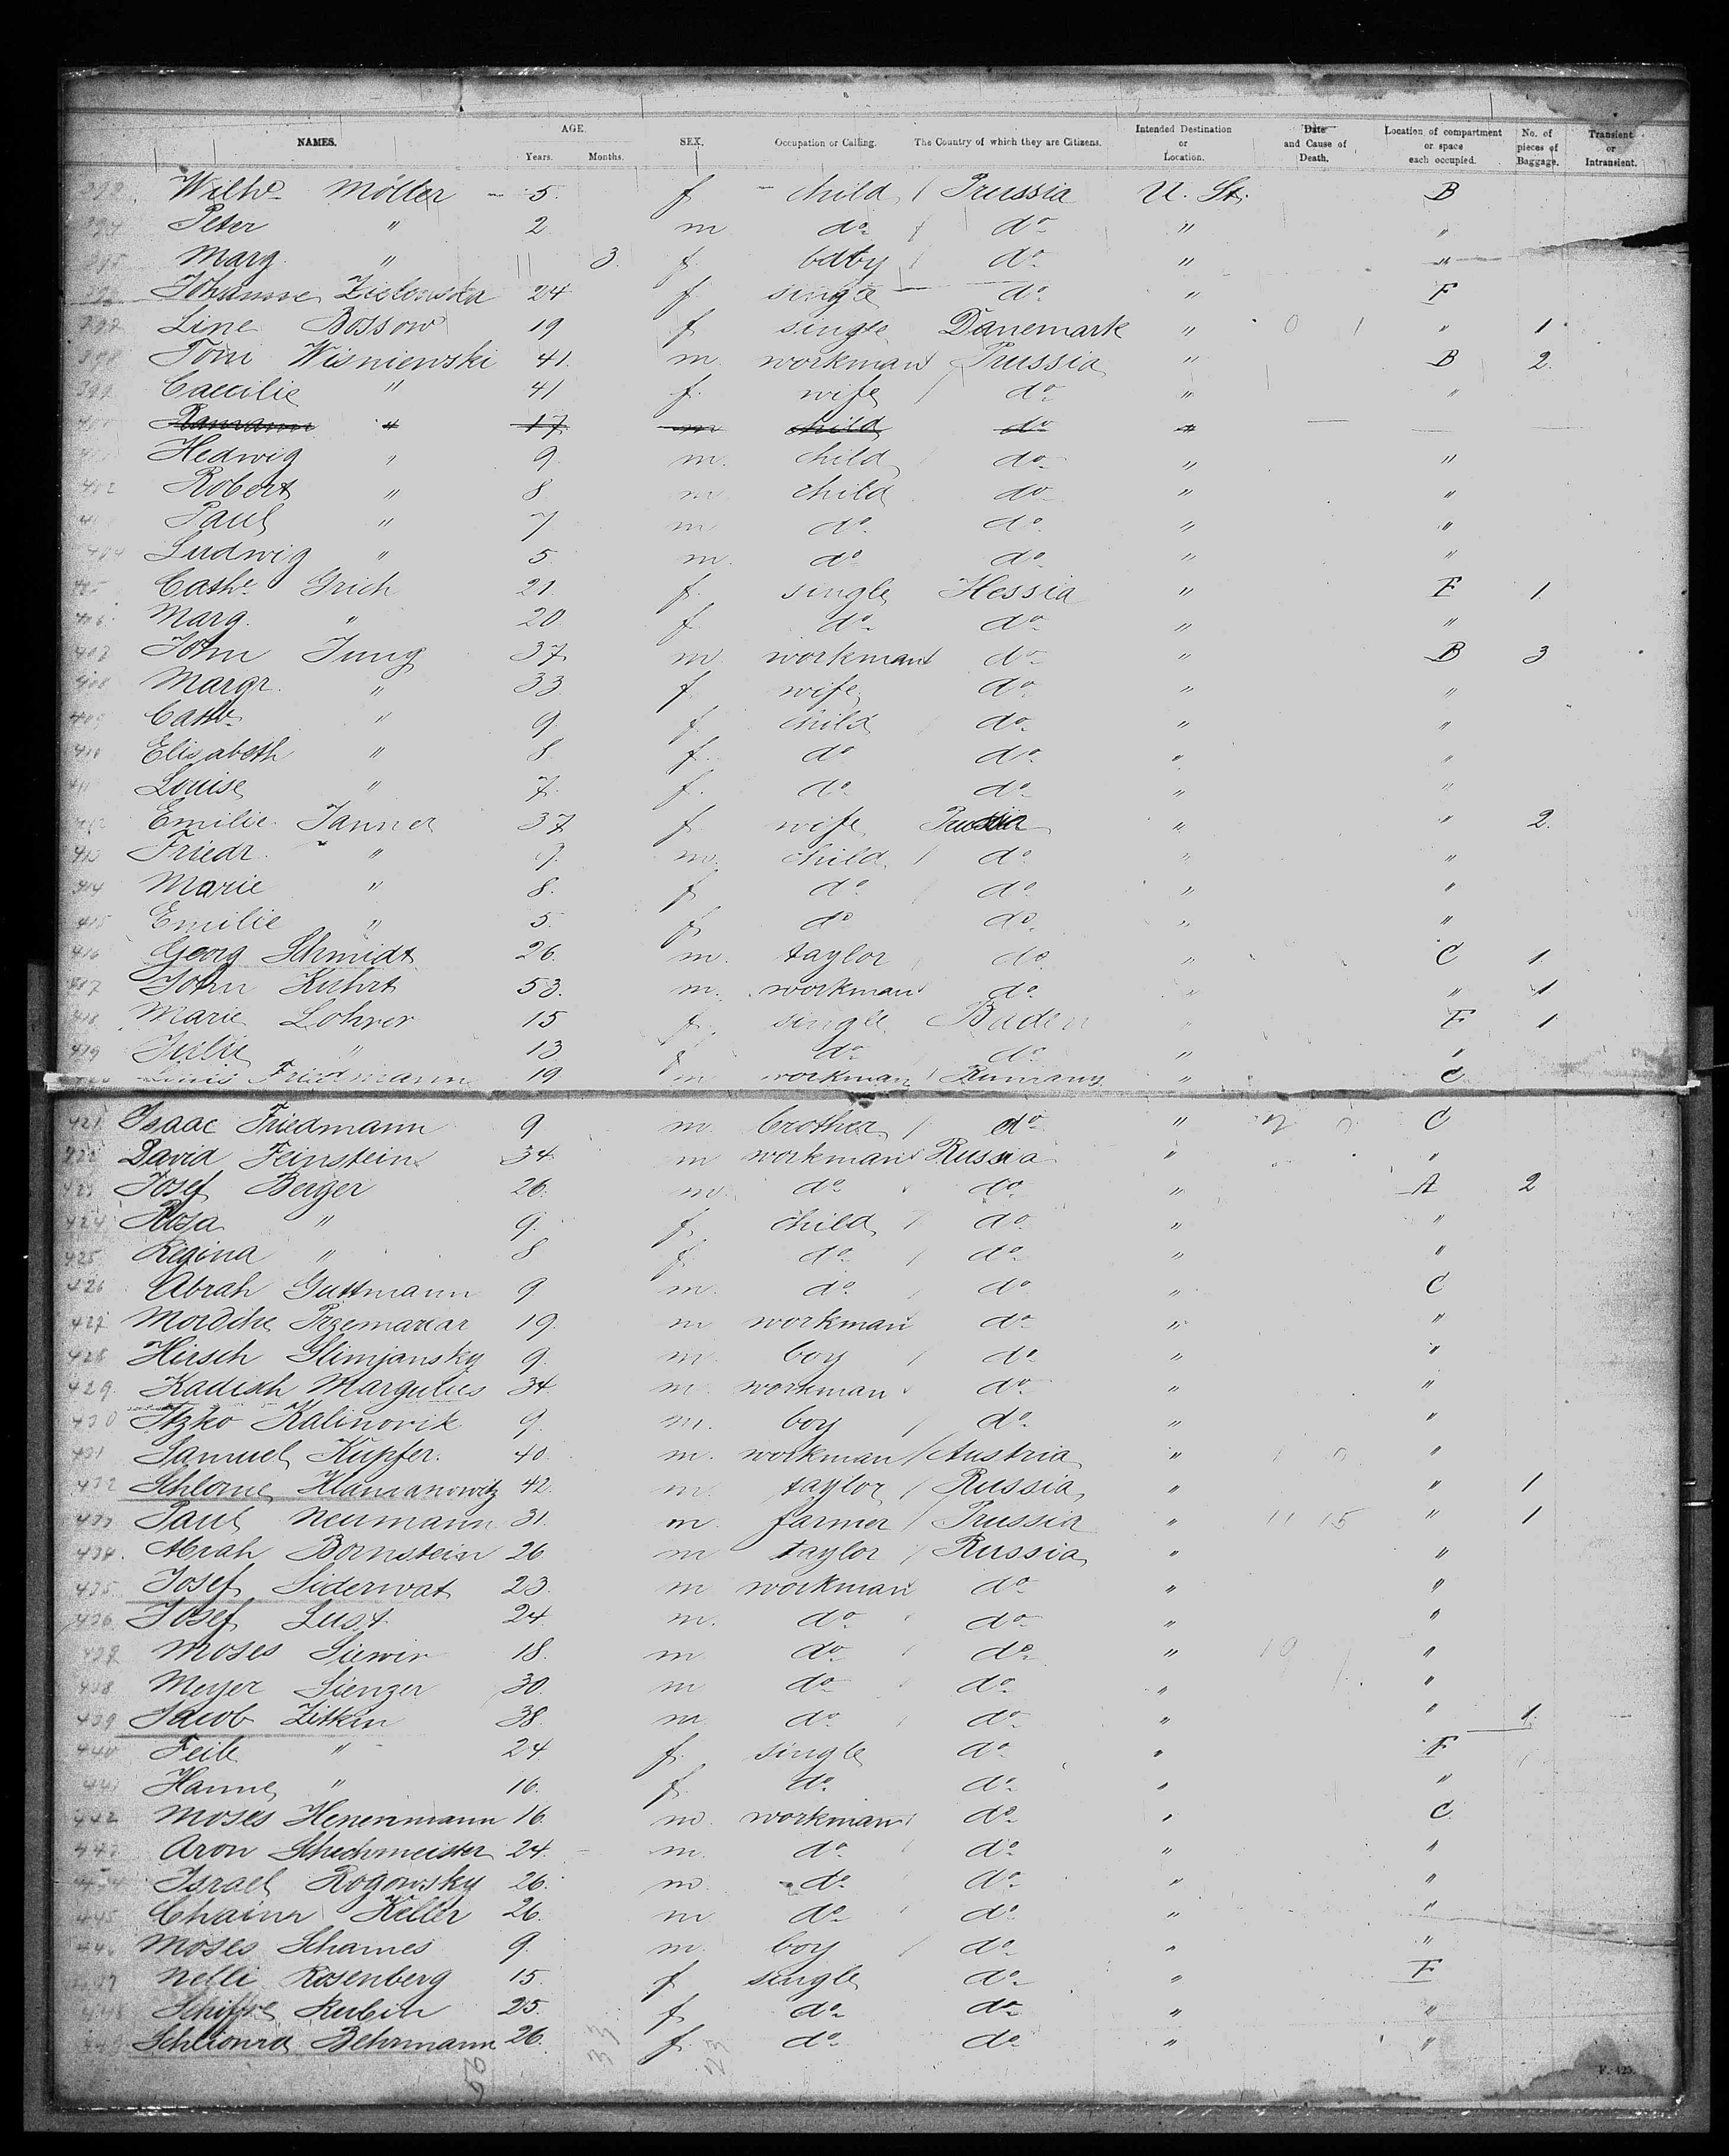 NAMES. AGE. Years. Months. SEX. Occupation or Calling. The Country of which they are Citizens. Intended Destination or Location. Date and Cause of Death. Location of compartment or space each occupied. No. of pieces of Baggage. Transient or Intransient.
393 Wilhe Möller 5. f child Prussia U. St. B
394 Peter " 2 m do do " "
395 Marg. " 3. f. baby do " "
396 Johanne Zielonska 24 f single do " F
397 Line Bossow 19 f single Danemark " " 1
398 Toni Wisniewski 41. m workman Prussia " B 2.
399 Caecilie " 41 f. wife do " "
400 " 17 m child do "
401 Hedwig " 9. m. child do " "
402 Robert " 8 m child do " "
403 Paul " 7 m do do " "
404 Ludwig " 5. m. do do " "
405 Cathe Grich 21. f. single Hessia " F 1.
406 Marg. " 20. f do do " "
407 John Jung 37. m workman do " B 3
408 Margr. " 33 f. wife do " "
409 Cathe " 9. f. child do " "
410 Elisabeth " 8. f. do do " "
411 Louise " 7. f. do do " "
412 Emilie Janner 37 f wife Prussia " " 2.
413 Friedr. " 9. m. child do " "
414 Marie " 8. f do do " "
415 Emilie " 5. f do do " "
416 Georg Schmidt 26. m. taylor do " C 1.
417 John Kuhrt 53. m. workman do " " 1
418 Marie Lohrer 15 f. single Baden " F 1
419 Julie " 13 f do do " "
420 Friedmann 19 m workman Rumany " C
421 Isaac Friedmann 9 m. brother do " C
422 David Feinstein 34 m workman Russia " "
423 Josef Berger 26. m. do do " A 2
424 Rosa " 9. f. child do " "
425 Regina " 8 f do do " "
426 Abrah Guttmann 9 m. do do " C
427 Mordche 19. m workman do " "
428 Hirsch Slimjansky 9. m. boy do " "
429 Kadisch Margulies 34. m workman do " "
430 Itzko Kalinovik 9. m. boy do " "
431 Samuel Kupfer. 40. m. workman Austria " "
432 Schlome Klamanowitz 42. m. taylor Russia " " 1
433 Paul Neumann 31. m. farmer Prussia " 11 15 " 1
434 Abrah Bornstein 26. m taylor Russia " "
435 Josef Siderwat 23. m workman do " "
436 Josef Lust 24. m. do do " "
437 Moses Siewir 18. m do do " 10 "
438 Meyer Sienzer 30. m do do " "
439 Jacob Zitkin 38. m do do " " 1.
440 Feile " 24. f. single do " F
441 Hanne " 16. f. do do " "
442 Moses Henenmann 16. m. workman do " C
443 Aron Schechmeister 24. m. do do " "
444 Israel Rogowsky 26. m. do do " "
445 Chaim Keller 26. m do do " "
446 Moses Schames 9. m. boy do " "
447 Nelli Rosenberg 15. f single do " F
448 Schiffre Rubin 25. f do do " "
449 Behrmann 26. f. do do " "
33 23
F. 425.